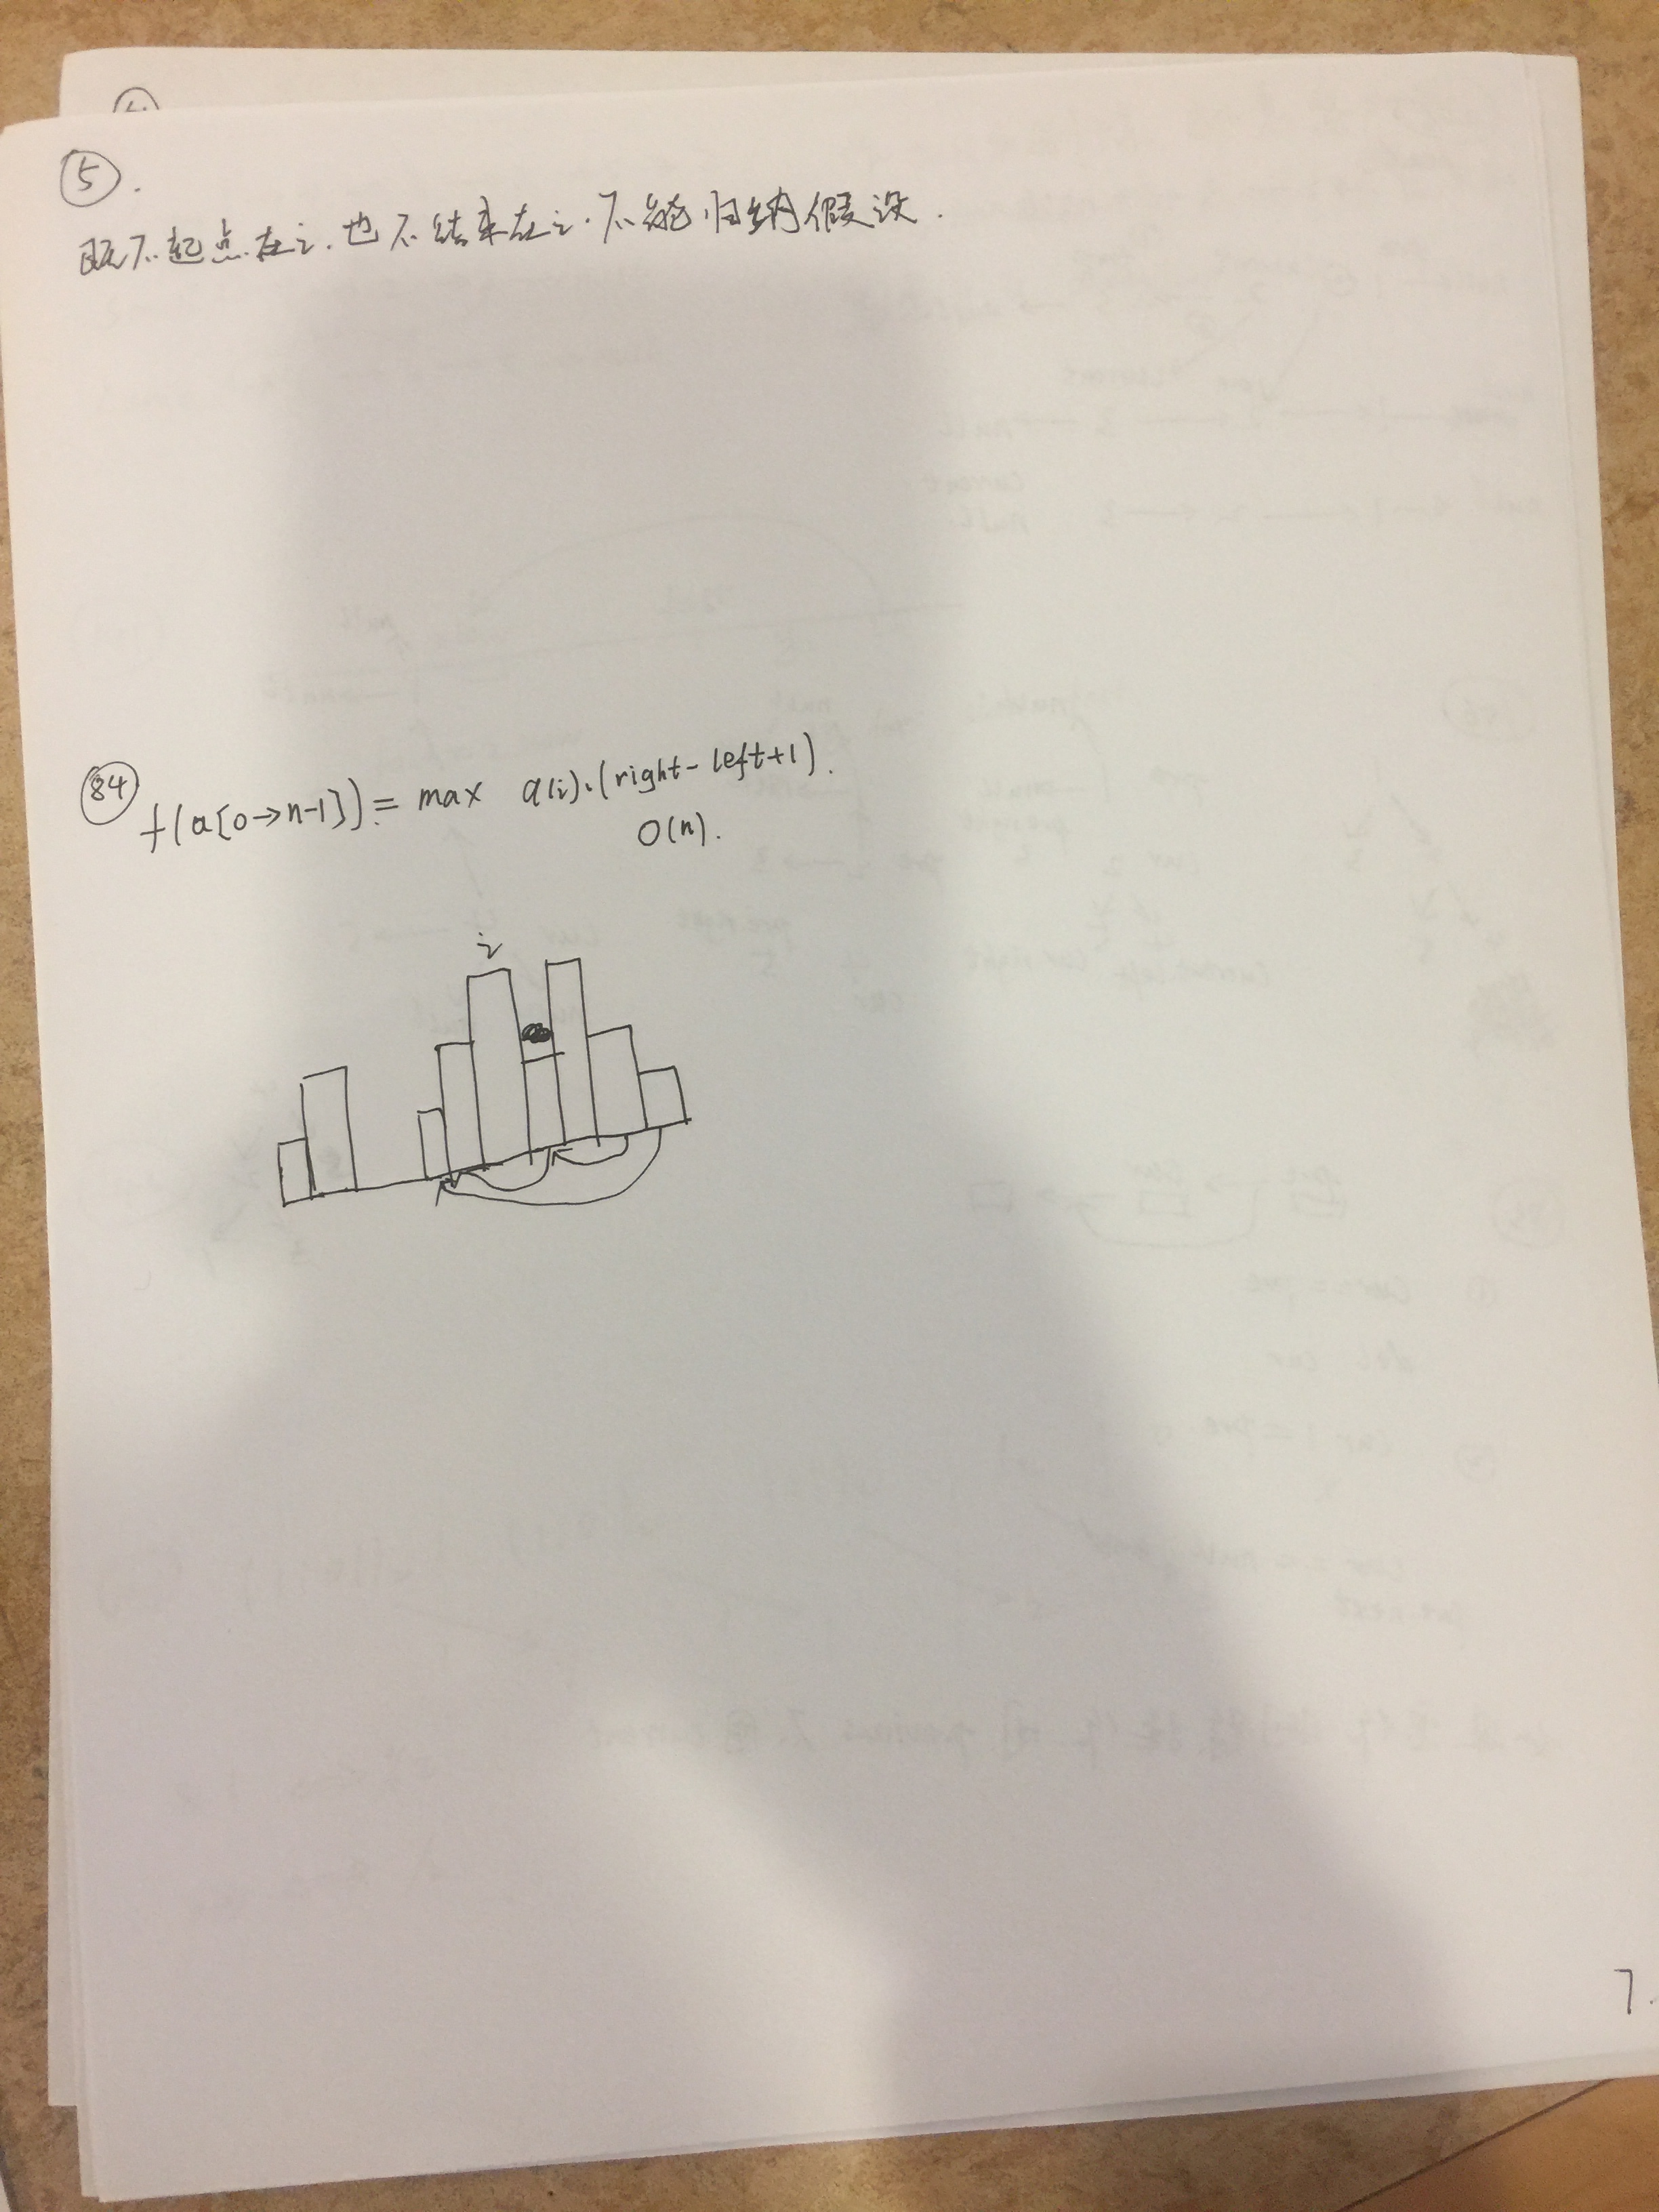 ⑤.
既不起点在i.也不结束在i.不能归纳假设.
84
f(a[0→n-1]) = max a(i).(right-left+1).
O(n).
i
7.